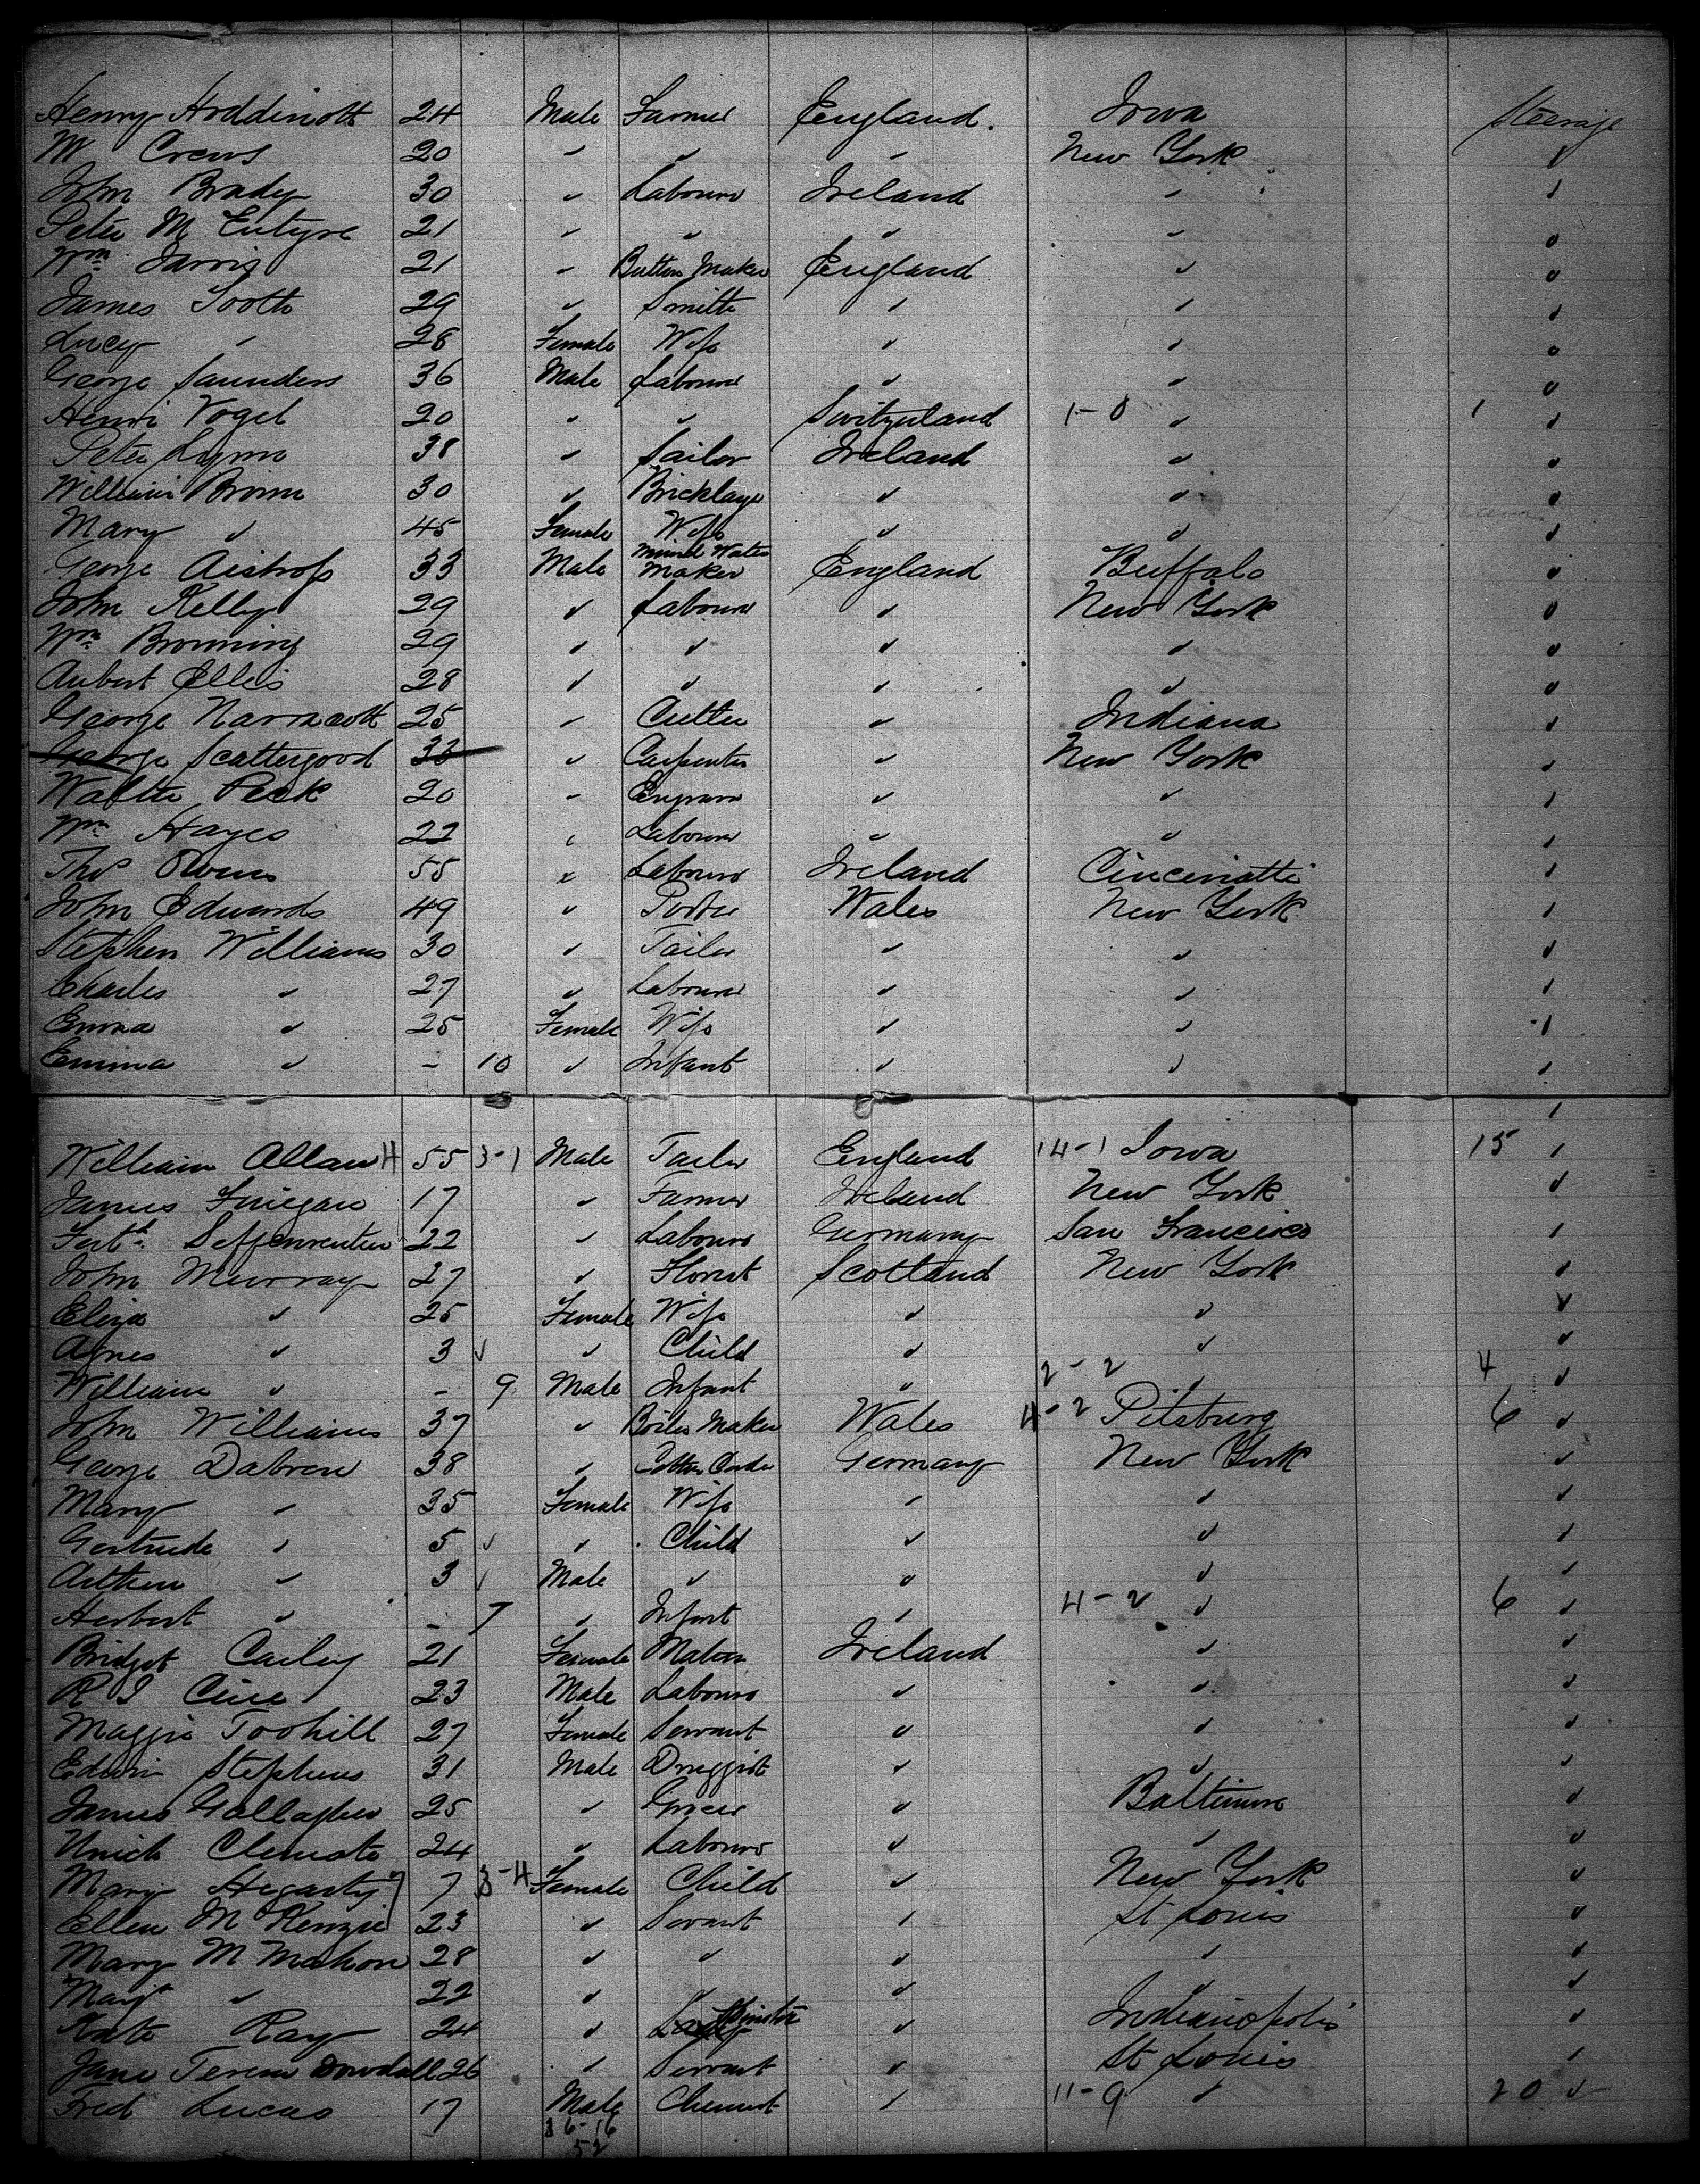 Henry Hoddinott 24 Male Farmer England. Iowa Steerage
W Crews 20 " " " New York "
John Brady 30 " Labourer Ireland " "
Peter Mc Entyre 21 " " " " "
Wm Jarvis 21 " Button Maker England " "
James Tooth 29 " Smith " " "
Lucy " 28 Female Wife " " "
George Saunders 36 Male Labourer " " "
Henri Vogel 20 " " Switzerland 1-0 " 1 "
Peter Lynn 38 " Sailor Ireland " "
William Brown 30 " Bricklayer " " "
Mary " 45 Female Wife " " "
George Aistrop 33 Male Mineral Water Maker England Buffalo "
John Kelly 29 " Labourer " New York "
Wm Browning 29 " " " " "
Aubert Ellis 28 " " " " "
George Narracott 25 " Cutter " Indiana "
George Scattergood 33 " Carpenter " New York "
Walter Peek 20 " Engraver " " "
Wm Hayes 22 " Labourer " " "
Thos Owens 55 " Labourer Ireland Cincinatti "
John Edwards 49 " Porter Wales New York "
Stephen Williams 30 " Tailor " " "
Charles " 27 " Labourer " " "
Emma " 25 Female Wife " " "
Emma " - 10 " Infant " " "
William Allan 4 55 3-1 Male Tailor England 14-1 Iowa 15 "
James Finegan 17 " Farmer Ireland New York "
22 " Labourer Germany San Francisco "
John Murray 27 " Florist Scotland New York "
Eliza " 25 Female Wife " " "
Agnes " 3 " " Child " " "
William " - 9 Male Infant " 2-2 " 4 "
John Williams 37 " Boiler Maker Wales 4-2 Pitsburg 6 "
George Dabron 38 " Cotton Carder Germany New York "
Mary " 35 Female Wife " " "
Gertrude " 5 " " Child " " "
Arthur " 3 " Male " " " "
Herbert " - 7 " Infant " 4-2 " 6 "
Bridget Cailey 21 Female Matron Ireland " "
R J 23 Male Labourer " " "
Maggie Toohill 27 Female Servant " " "
Edwin Stephens 31 Male Druggist " " "
James Gallagher 25 " Grocer " Baltimore "
24 " Labourer " " "
Mary Hegarty 7 7 3-4 Female Child " New York "
Ellen Mc Kenzie 23 " Servant " St Louis "
Mary Mc Mahon 28 " " " " "
Margt " 22 " " " " "
Kate Ray 24 " Spinster " Indianopolis "
Jane Teresa Dowdall 26 " Servant " St Louis "
Fred Lucas 17 Male Chemist " 11-9 " 20 "
36-16
52